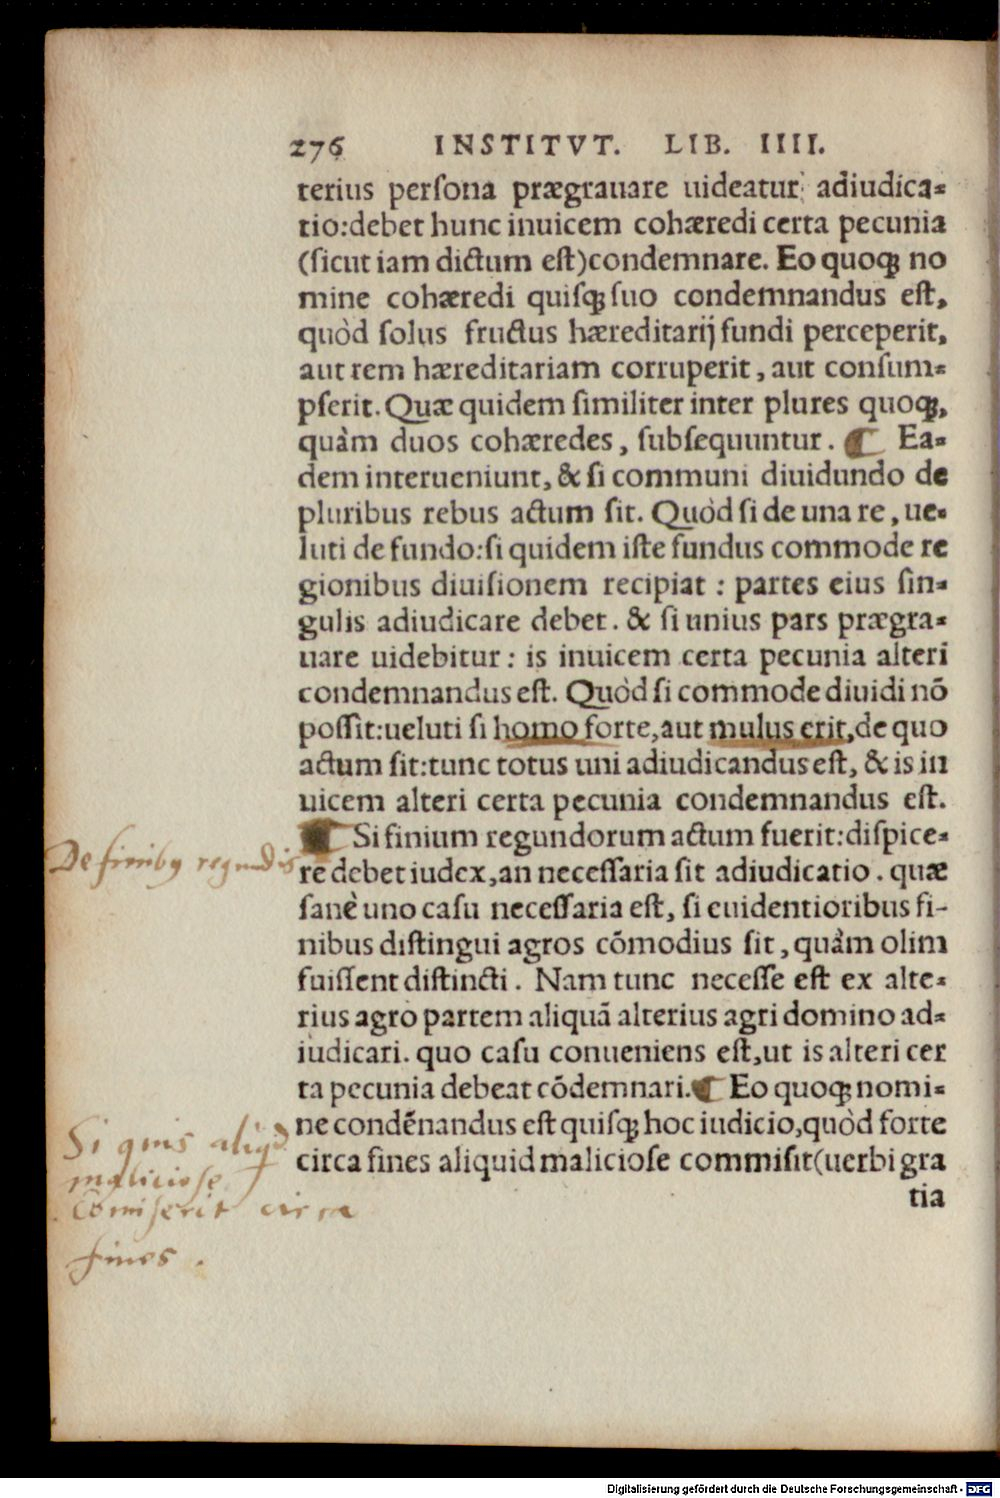 276 INSTITVT. LIB. IIII.
terius perſona prægrauare uideatur adiudica-
tio:debet hunc inuicem cohæredi certa pecunia
(ſicut iam dictum eſt)condemnare. Eo quoqꝫ no
mine cohæredi quiſqꝫ ſuo condemnandus eſt,
quòd ſolus fructus hæreditarij fundi perceperit,
aut rem hæreditariam corruperit, aut conſum-
pſerit. Quæ quidem ſimiliter inter plures quoqꝫ,
quàm duos cohæredes, ſubſequuntur. ¶ Ea-
dem interueniunt, & ſi communi diuidundo de
pluribus rebus actum ſit. Quòd ſi de una re, ue-
luti de fundo:ſi quidem iſte fundus commode re
gionibus diuiſionem recipiat : partes eius ſin-
gulis adiudicare debet. & ſi unius pars prægra-
uare uidebitur : is inuicem certa pecunia alteri
condemnandus eſt. Quòd ſi commode diuidi nō
poſſit:ueluti ſi homo forte,aut mulus erit,de quo
actum ſit:tunc totus uni adiudicandus eſt, & is in
uicem alteri certa pecunia condemnandus eſt.
¶ Si finium regundorum actum fuerit:diſpice-
De finibꝯ regundis
re debet iudex,an neceſſaria ſit adiudicatio. quæ
ſanè uno caſu neceſſaria eſt, ſi euidentioribus fi-
nibus diſtingui agros cōmodius ſit, quàm olim
fuiſſent diſtincti. Nam tunc neceſſe eſt ex alte-
rius agro partem aliquā alterius agri domino ad-
iudicari. quo caſu conueniens eſt,ut is alteri cer
ta pecunia debeat cōdemnari.¶ Eo quoqꝫ nomi-
ne condēnandus eſt quiſqꝫ hoc iudicio,quòd forte
circa fines aliquid malicioſe commiſit(uerbi gra
tia
Si quis aliqd
malicioſe
Comiſerit circa
fines.
Digitalisierung gefördert durch die Deutsche Forschungsgemeinschaft - DFG